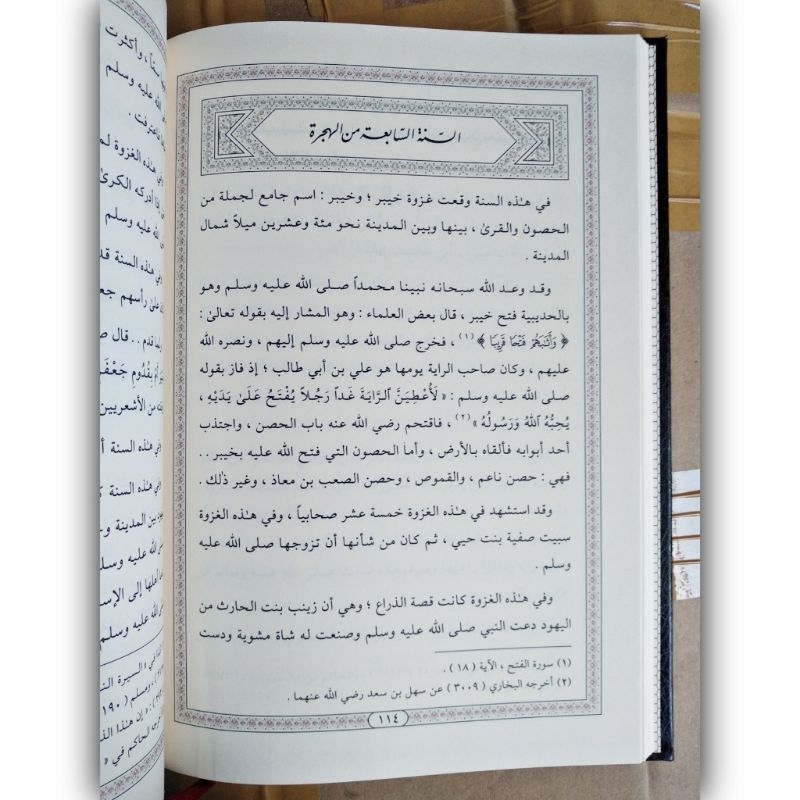 السنة السابعة من الهجرة
في هذه السنة وقعت غزوة خيبر ؛ وخيبر : اسم جامع لجملة من
الحصون والقرىٰ ، بينها وبين المدينة نحو مئة وعشرين ميلاً شمال
المدينة .
وقد وعد الله سبحانه نبينا محمداً صلى الله عليه وسلم وهو
بالحديبية فتح خيبر ، قال بعض العلماء : وهو المشار إليه بقوله تعالىٰ :
﴿ وَأَثَٰبَهُمْ فَتْحًا قَرِيبًا ﴾ (١) ، فخرج صلى الله عليه وسلم إليهم ، ونصره الله
عليهم ، وكان صاحب الراية يومها هو علي بن أبي طالب ؛ إذ فاز بقوله
صلى الله عليه وسلم : « لَأُعْطِيَنَّ ٱلرَّايَةَ غَداً رَجُلاً يُفْتَحُ عَلَىٰ يَدَيْهِ ،
يُحِبُّهُ ٱللهُ وَرَسُولُهُ » (٢) ، فاقتحم رضي الله عنه باب الحصن ، واجتذب
أحد أبوابه فألقاه بالأرض ، وأما الحصون التي فتح الله عليه بخيبر . .
فهي : حصن ناعم ، والقموص ، وحصن الصعب بن معاذ ، وغير ذلك .
وقد استشهد في هذه الغزوة خمسة عشر صحابياً ، وفي هذه الغزوة
سبيت صفية بنت حيي ، ثم كان من شأنها أن تزوجها صلى الله عليه
وسلم .
وفي هذه الغزوة كانت قصة الذراع ؛ وهي أن زينب بنت الحارث من
اليهود دعت النبي صلى الله عليه وسلم وصنعت له شاة مشوية ودست
(١) سورة الفتح ، الآية ( ١٨ ) .
(٢) أخرجه البخاري ( ٣٠٠٩ ) عن سهل بن سعد رضي الله عنهما .
١١٤
وأكثرت
الله عليه وسلم
في هذه الغزوة
إذا أدركه الكرىٰ
الله عليه وسلم
في هذه السنة
علىٰ رأسهم
قدم . . قال
بِقُدُومِ جَعْفَرٍ
من الأشعريين
في هذه السنة
في هذه السنة
بين المدينة
الله عليه وسلم
الله عليه وسلم